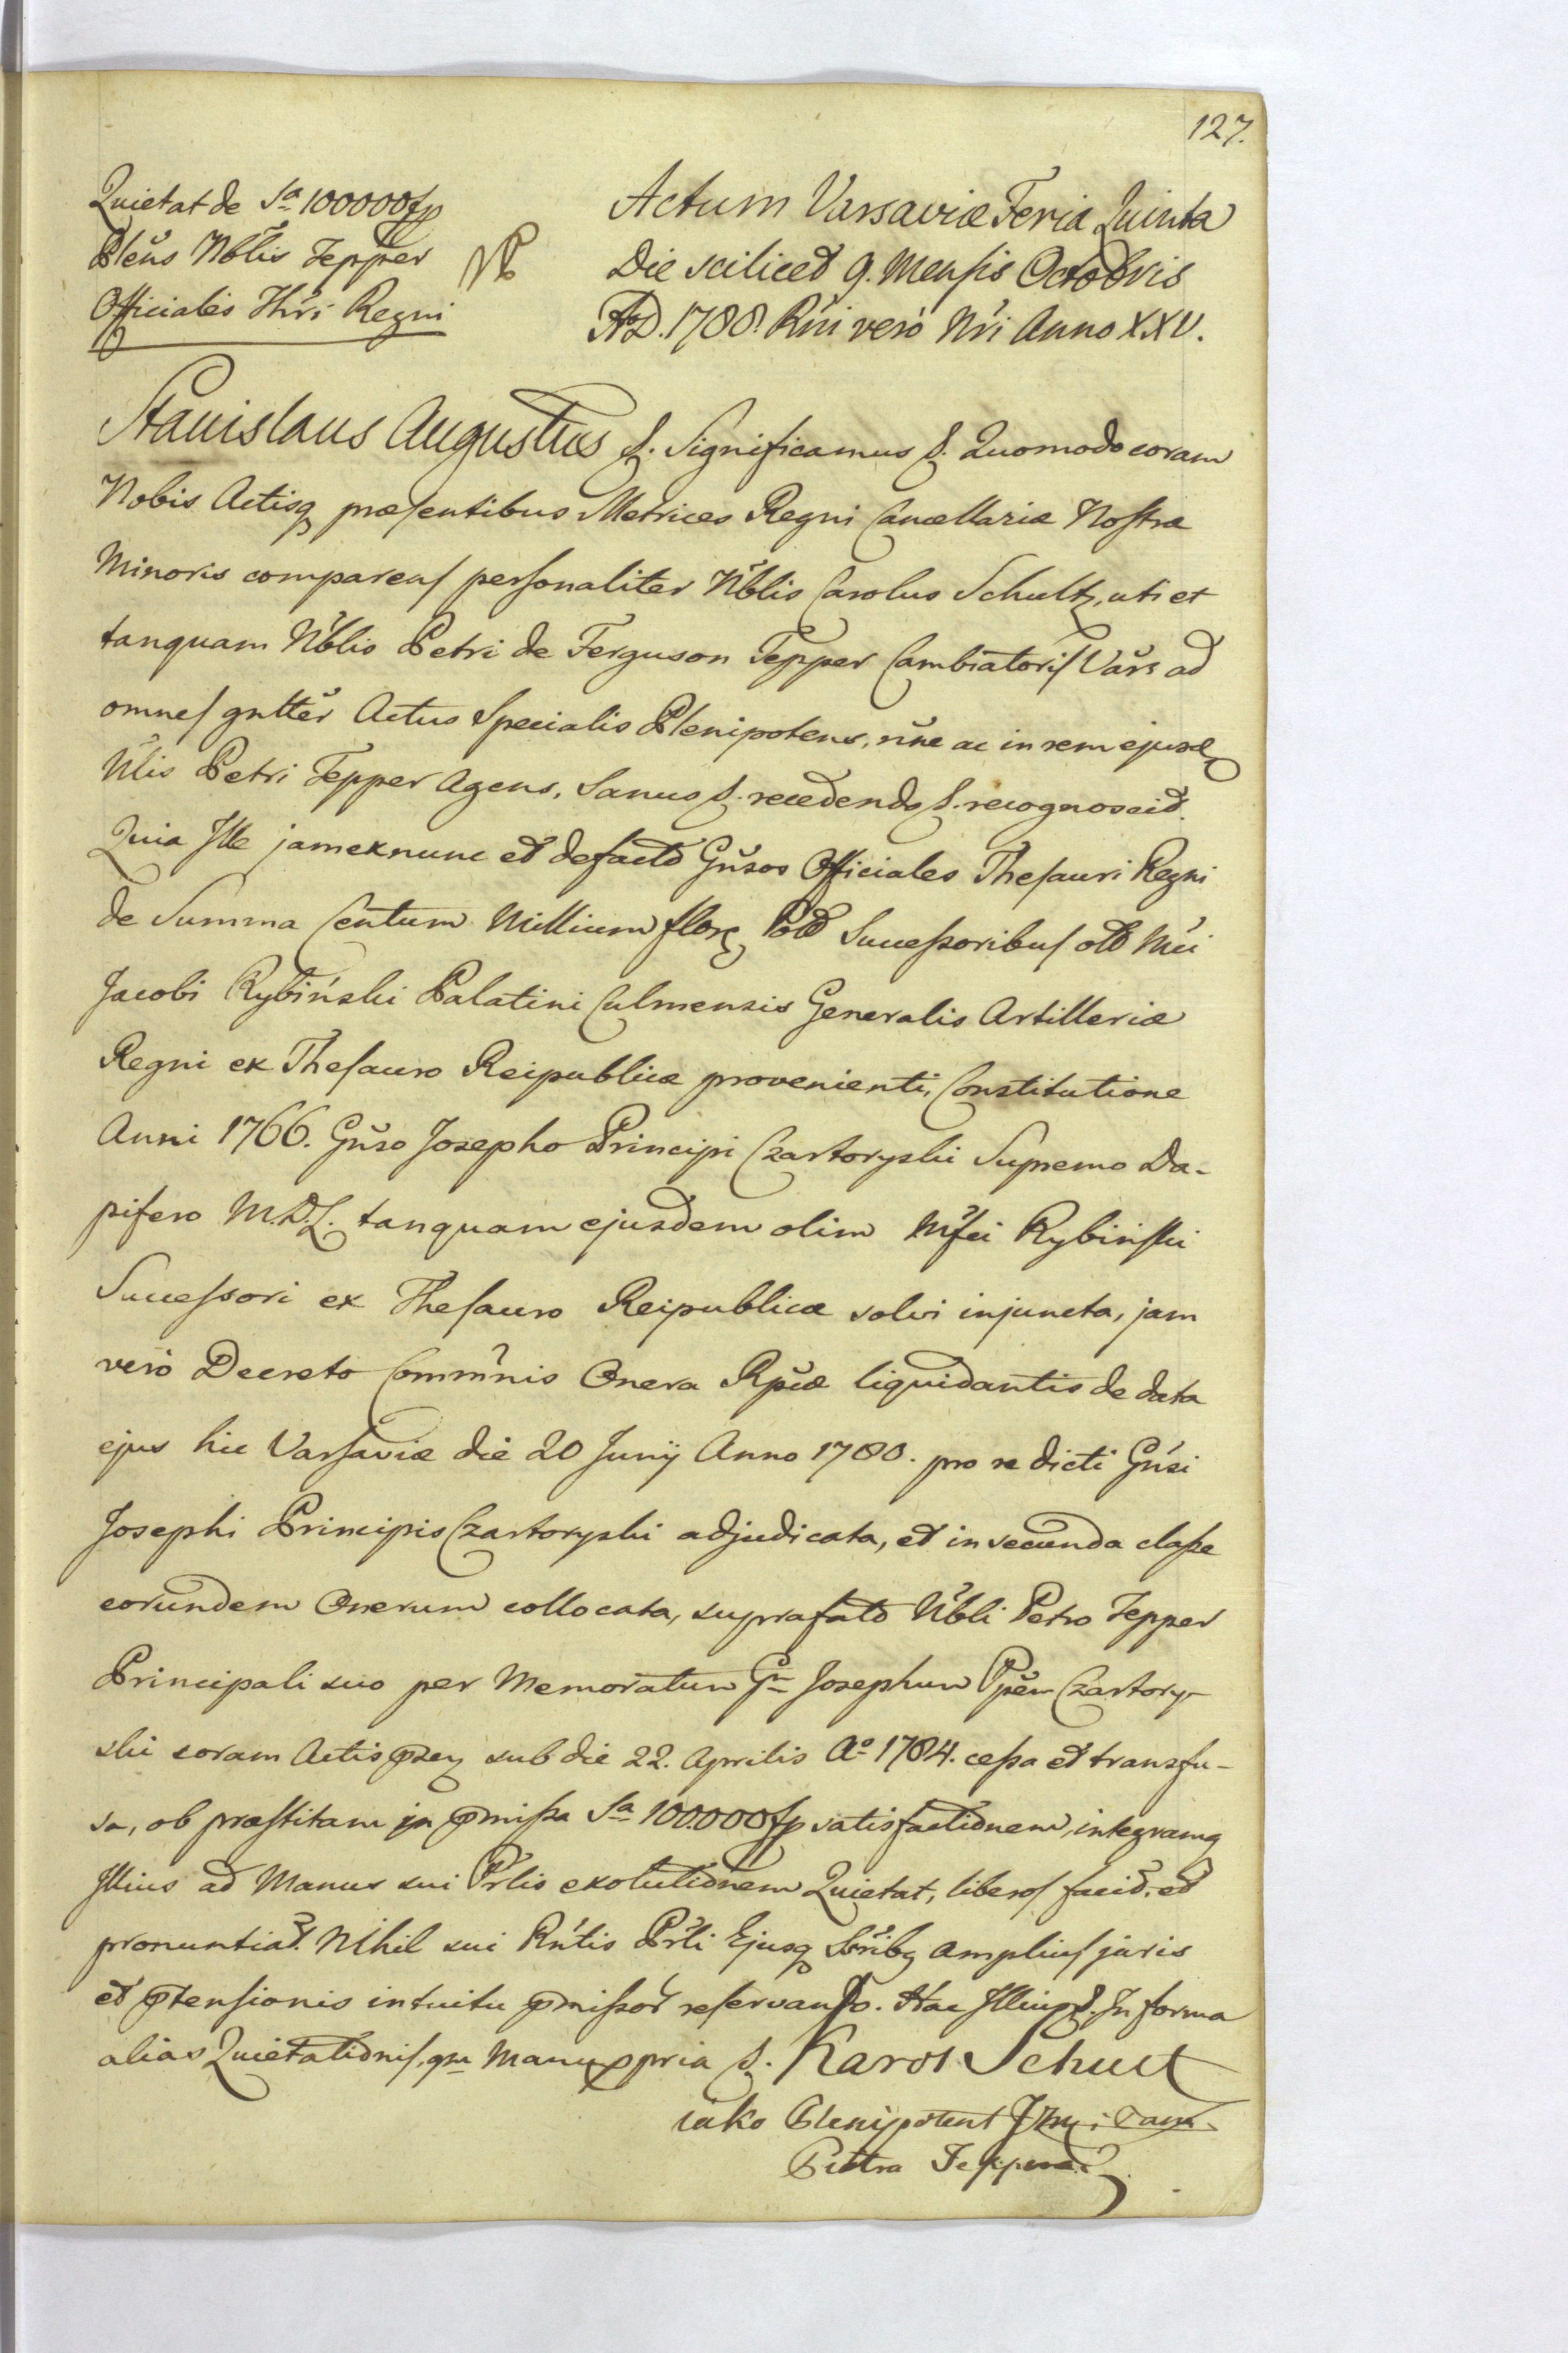 127.
Quietat de Sa 100000 fp
Plens Nblis Tepper
Officiales Thri Regni
Actum Varsaviæ Feria Quinta
Die scilicet 9. Mensis Octobris
AD. 1788. Rni verò Nri Anno XXV.
Stanislaus Augustus &. Significamus &. Quomodo coram
Nobis Actisq præsentibus Metrices Regni Cancellariæ Nostræ
Minoris comparens personaliter Nblis Carolus Schultz, uti et
tanquam Nblis Petri de Ferguson Tepper Cambiatoris Vars ad
omnes gntter Actus Specialis Plenipotens, nne ac in rem ejusd
Nlis Petri Tepper Agens, Sanus &. recedendo &. recognoscit.
Quia Ille jam ex nunc et defacto Gnsos Officiales Thesauri Regni
de Summa Centum Millium flor Pold Successoribus olt Mci
Jacobi Rybiński Palatini Culmensis Generalis Artilleriæ
Regni ex Thesauro Reipublicæ provenienti, Constitutione
Anni 1766. Gnso Josepho Principi Czartoryski Supremo Da-
pifero M.D.L. tanquam ejusdem olim Mfci Rybinski
Successori ex Thesauro Reipublicæ solvi injuncta, jam
verò Decreto Commnis Onera Rpcæ liquidantis de data
ejus hic Varsaviæ die 20 Junij Anno 1780. pro re dicti Gnsi
Josephi Principis Czartoryski adjudicata, et in secunda classe
eorundem Onerum collocata, suprafato Nbli Petro Tepper
Principali suo per Memoratum Gm Josephum Ppem Czartory-
ski coram Actis psen sub die 22. Aprilis Ao 1784. cessa et transfu-
sa, ob præstitam in pmissa Sa 100.000 fp satisfactionem, integramq
Illius ad Manus sui Prlis exolutionem Quietat, liberos facit, et
pronuntiat. Nihil sui Rntis Prli Ejusq Sbribq amplius juris
et ptensionis intuitu pmissor reservando. Hac Illius &. In forma
alias Quietationis, qm Manu ppria &. Karol Schult
iako Plenipotent
Piotra Teppera